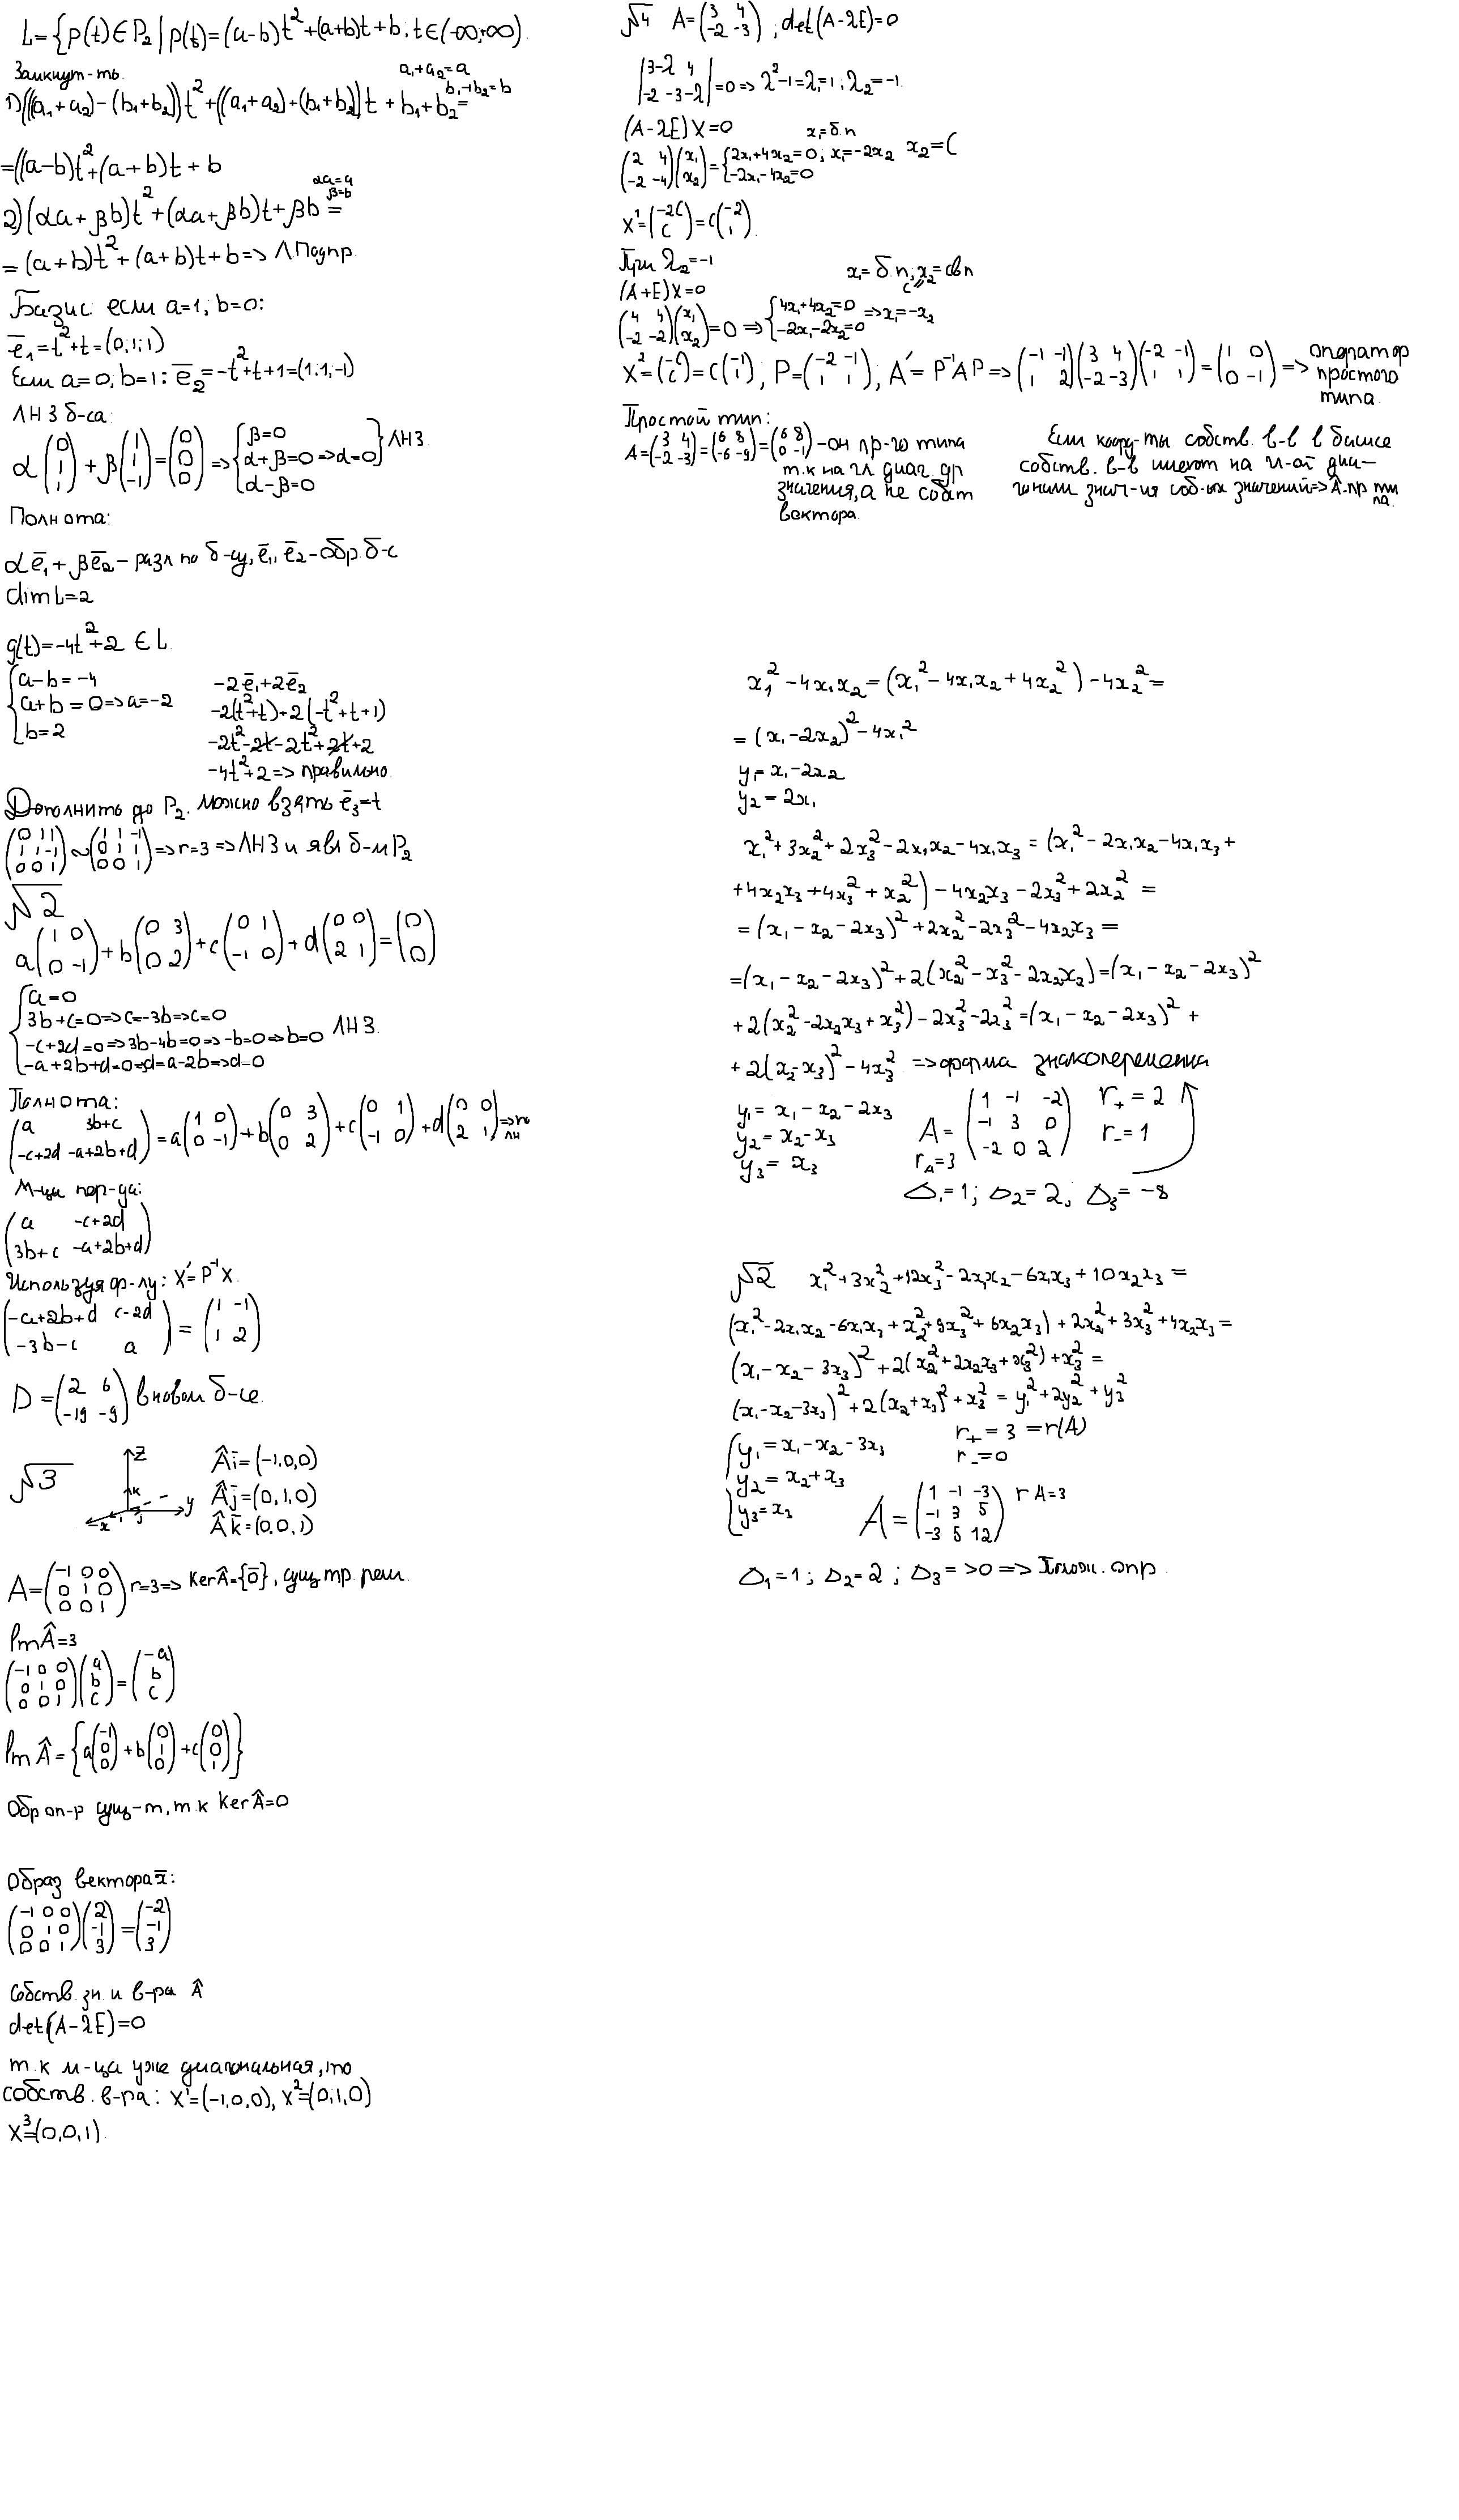 L={p(t)∈P₂ | p(t)=(a-b)t²+(a+b)t+b; t∈(-∞;+∞)
Замкнут-ть.
a₁+a₂=a
b₁+b₂=b
1) (((a₁+a₂)-(b₁+b₂))t²+((a₁+a₂)+(b₁+b₂))t+b₁+b₂=
=((a-b)t²+(a+b)t+b
αa=a
β=b
2) (αa+βb)t²+(αa+βb)t+βb=
=(a+b)t²+(a+b)t+b=> Л.Подпр.
Базис: если a=1; b=0:
e̅₁=t²+t=(0;1;1)
Если a=0; b=1: e̅₂=-t²+t+1=(1.1,-1)
ЛНЗ б-са:
α(0 1 1)+β(1 1 -1)=(0 0 0)=>{β=0
α+β=0=>α=0} ЛНЗ.
α-β=0
Полнота:
αe̅₁+βe̅₂-разл по б-су, e̅₁, e̅₂-обр. б-с
dim L=2
g(t)=-4t²+2 ∈ L.
{a-b=-4
a+b=0=>a=-2
b=2
-2e̅₁+2e̅₂
-2(t²+t)+2(-t²+t+1)
-2t²-2t-2t²+2t+2
-4t²+2=> правильно.
Дополнить до P₂. Можно взять e̅₃=t
(0 1 1
1 1 -1
0 0 1)~(1 1 -1
0 1 1
0 0 1)=>r=3=>ЛНЗ и явл б-м P₂
√2
a(1 0
0 -1)+b(0 3
0 2)+c(0 1
-1 0)+d(0 0
2 1)=(0
0)
{a=0
3b+c=0=>c=-3b=>c=0
-c+2d=0=>3b-4b=0=>-b=0=>b=0 ЛНЗ.
-a+2b+d=0=>d=a-2b=>d=0
Полнота:
(a 3b+c
-c+2d -a+2b+d)=a(1 0
0 -1)+b(0 3
0 2)+c(0 1
-1 0)+d(0 0
2 1)=>
М-ца пер-да:
(a -c+2d
3b+c -a+2b+d)
Используя ф-лу: X'=P⁻¹X.
(-a+2b+d c-2d
-3b-c a)=(1 -1
1 2)
D=(2 6
-19 -9) в новом б-се.
√3
z
k
y
-x i j
Âi̅=(-1,0,0)
Âj̅=(0,1,0)
Âk̅=(0,0,1)
A=(-1 0 0
0 1 0
0 0 1) r=3=> KerÂ={0̅}, сущ тр. реш.
ImÂ=3
(-1 0 0
0 1 0
0 0 1)(a
b
c)=(-a
b
c)
ImÂ={a(-1
0
0)+b(0
1
0)+c(0
0
1)}
Обр оп-р сущ-т, т.к KerÂ=0
Образ вектора x̅:
(-1 0 0
0 1 0
0 0 1)(2
-1
3)=(-2
-1
3)
Собств. зн. и в-ра Â
det(A-λE)=0
т.к м-ца уже диагональная, то
собств. в-ра: X¹=(-1,0,0), X²=(0,1,0)
X³=(0,0,1).
√4 A=(3 4
-2 -3); det(A-λE)=0
|3-λ 4
-2 -3-λ|=0=>λ²-1=λ₁=1; λ₂=-1.
(A-λE)X=0 x₁=б.п
(2 4
-2 -4)(x₁
x₂)={2x₁+4x₂=0; x₁=-2x₂ x₂=C
-2x₁-4x₂=0
X¹=(-2C
C)=C(-2
1).
При λ₂=-1 x₁=б.п; x₂=св п
C
(A+E)X=0
(4 4
-2 -2)(x₁
x₂)=0=>{4x₁+4x₂=0 =>x₁=-x₂
-2x₁-2x₂=0
X²=(-C
C)=C(-1
1); P=(-2 -1
1 1); A'=P⁻¹AP=>(-1 -1
1 2)(3 4
-2 -3)(-2 -1
1 1)=(1 0
0 -1)=> оператор
простого
типа.
Простой тип:
A=(3 4
-2 -3)=(6 8
-6 -9)=(6 8
0 -1)-он пр-го типа
т.к на гл диаг. др
значения, а не собст
вектора.
Если коор-ты собств. в-в в базисе
собств. в-в имеют на гл-ой диа-
гонали знач-ия соб-ых значений=>Â-пр ти
па.
x₁²-4x₁x₂=(x₁²-4x₁x₂+4x₂²)-4x₂²=
=(x₁-2x₂)²-4x₁²
y₁=x₁-2x₂
y₂=2x₁
x₁²+3x₂²+2x₃²-2x₁x₂-4x₁x₃=(x₁²-2x₁x₂-4x₁x₃+
+4x₂x₃+4x₃²+x₂²)-4x₂x₃-2x₃²+2x₂²=
=(x₁-x₂-2x₃)²+2x₂²-2x₃²-4x₂x₃=
=(x₁-x₂-2x₃)²+2(x₂²-x₃²-2x₂x₂)=(x₁-x₂-2x₃)²
+2(x₂²-2x₂x₃+x₃²)-2x₃²-2x₃²=(x₁-x₂-2x₃)²+
+2(x₂-x₃)²-4x₃² =>форма знакопеременна
y₁=x₁-x₂-2x₃
y₂=x₂-x₃
y₃=x₃
A=(1 -1 -2
-1 3 0
-2 0 2)
r_A=3
r₊=2
r₋=1
Δ₁=1; Δ₂=2; Δ₃=-8
√2 x₁²+3x₂²+12x₃²-2x₁x₂-6x₁x₃+10x₂x₃=
(x₁²-2x₁x₂-6x₁x₃+x₂²+9x₃²+6x₂x₃)+2x₂²+3x₃²+4x₂x₃=
(x₁-x₂-3x₃)²+2(x₂²+2x₂x₃+x₃²)+x₃²=
(x₁-x₂-3x₃)²+2(x₂+x₃)²+x₃²=y₁²+2y₂²+y₃²
r₊=3=r(A)
r₋=0
{y₁=x₁-x₂-3x₃
y₂=x₂+x₃
y₃=x₃
A=(1 -1 -3
-1 3 5
-3 5 12) r A=3
Δ₁=1; Δ₂=2; Δ₃=>0=> Полож. опр.